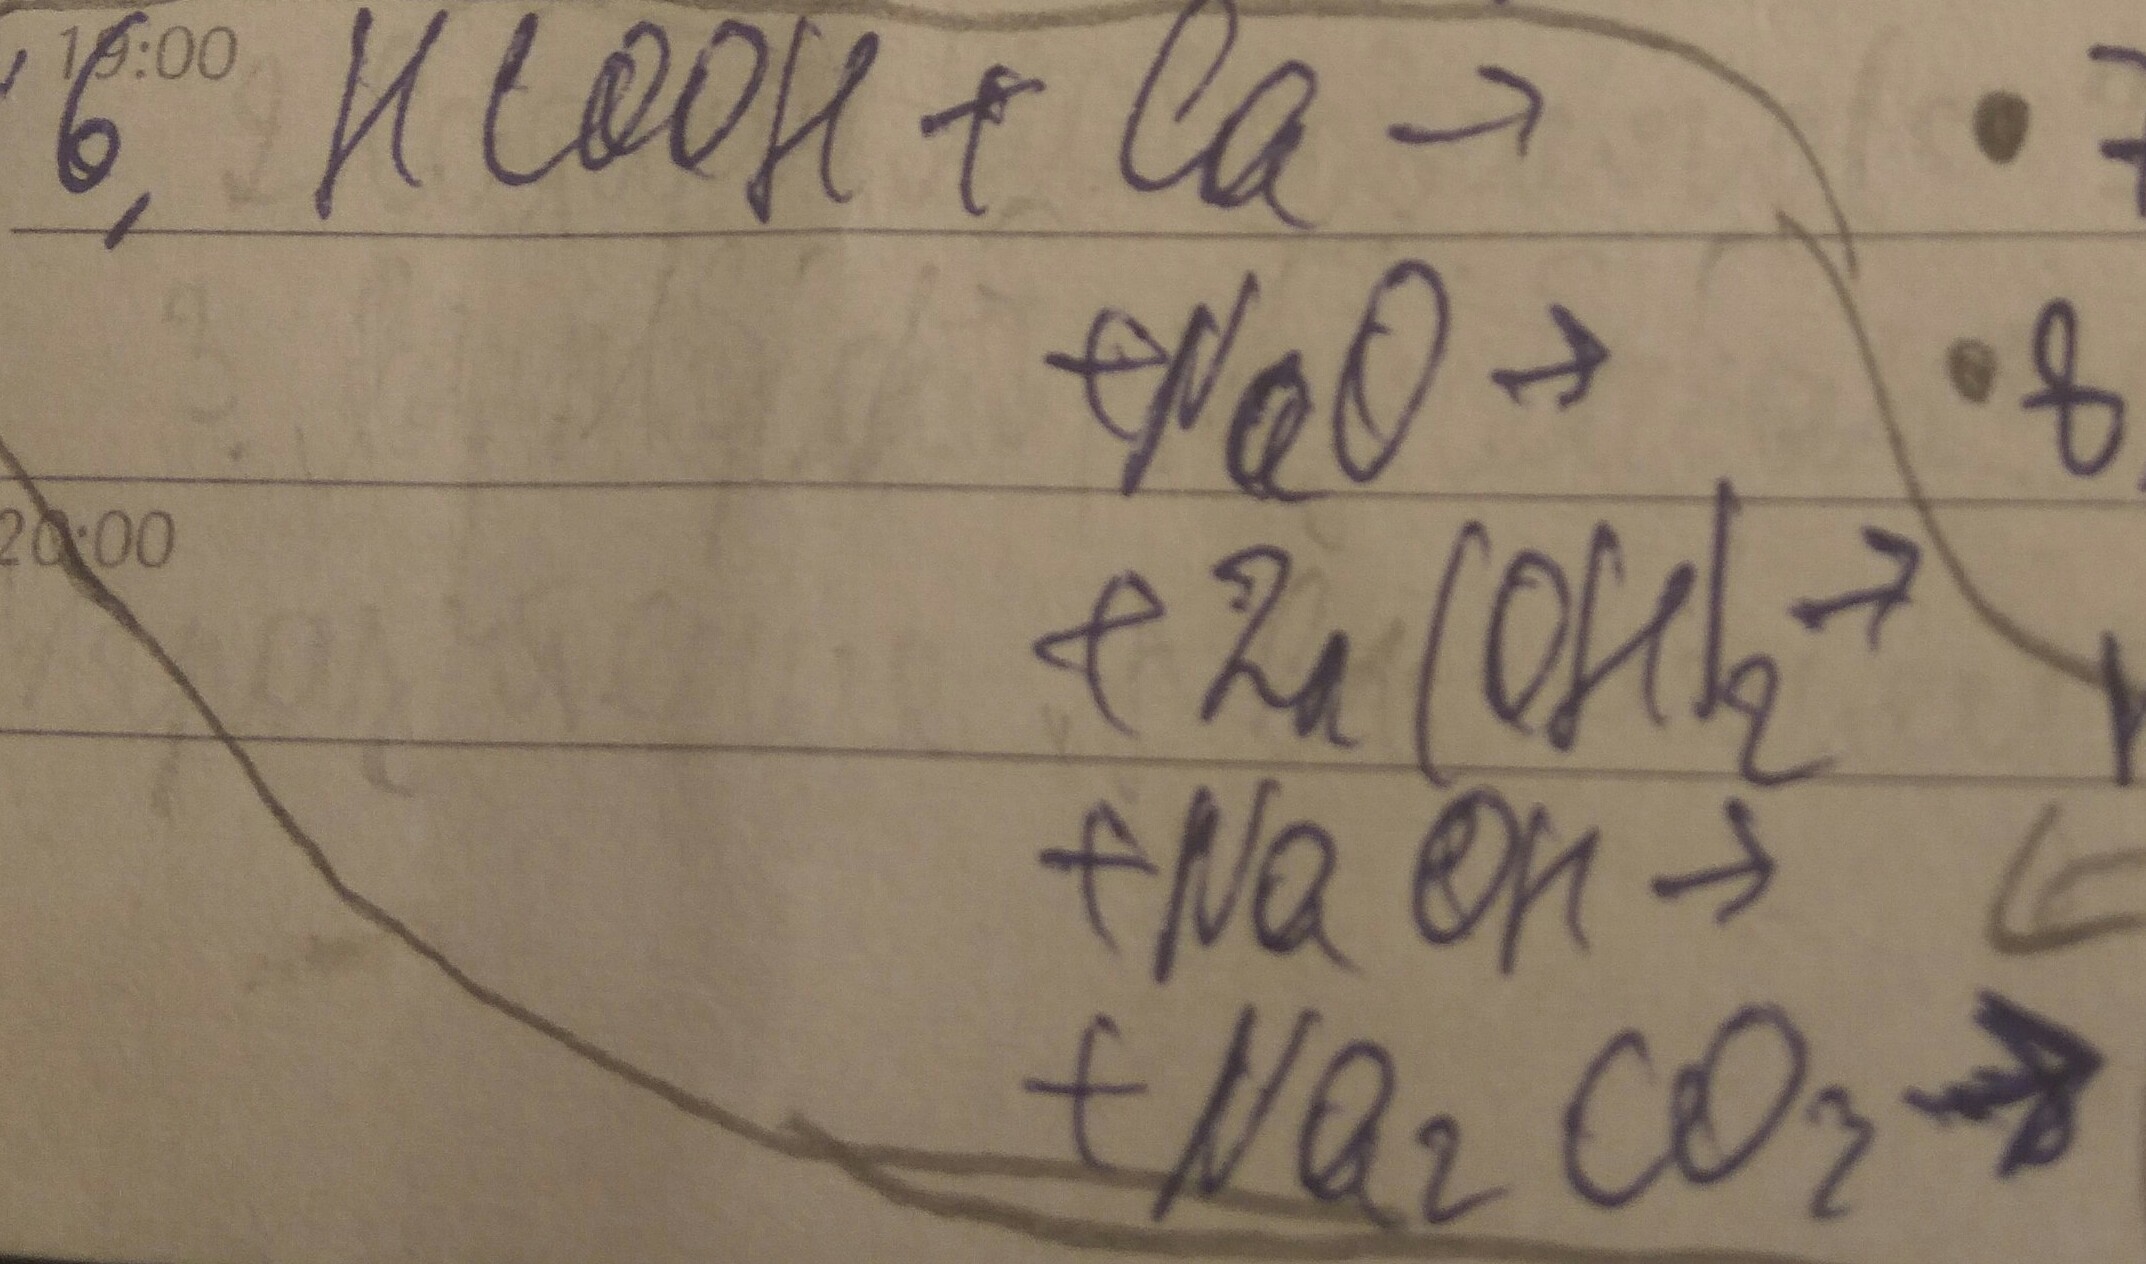 19:00
6, HCOOH + Ca →
+ NaO → • 8,
20:00
+ Zn(OH)2 →
+ NaOH →
+ Na2CO3 →